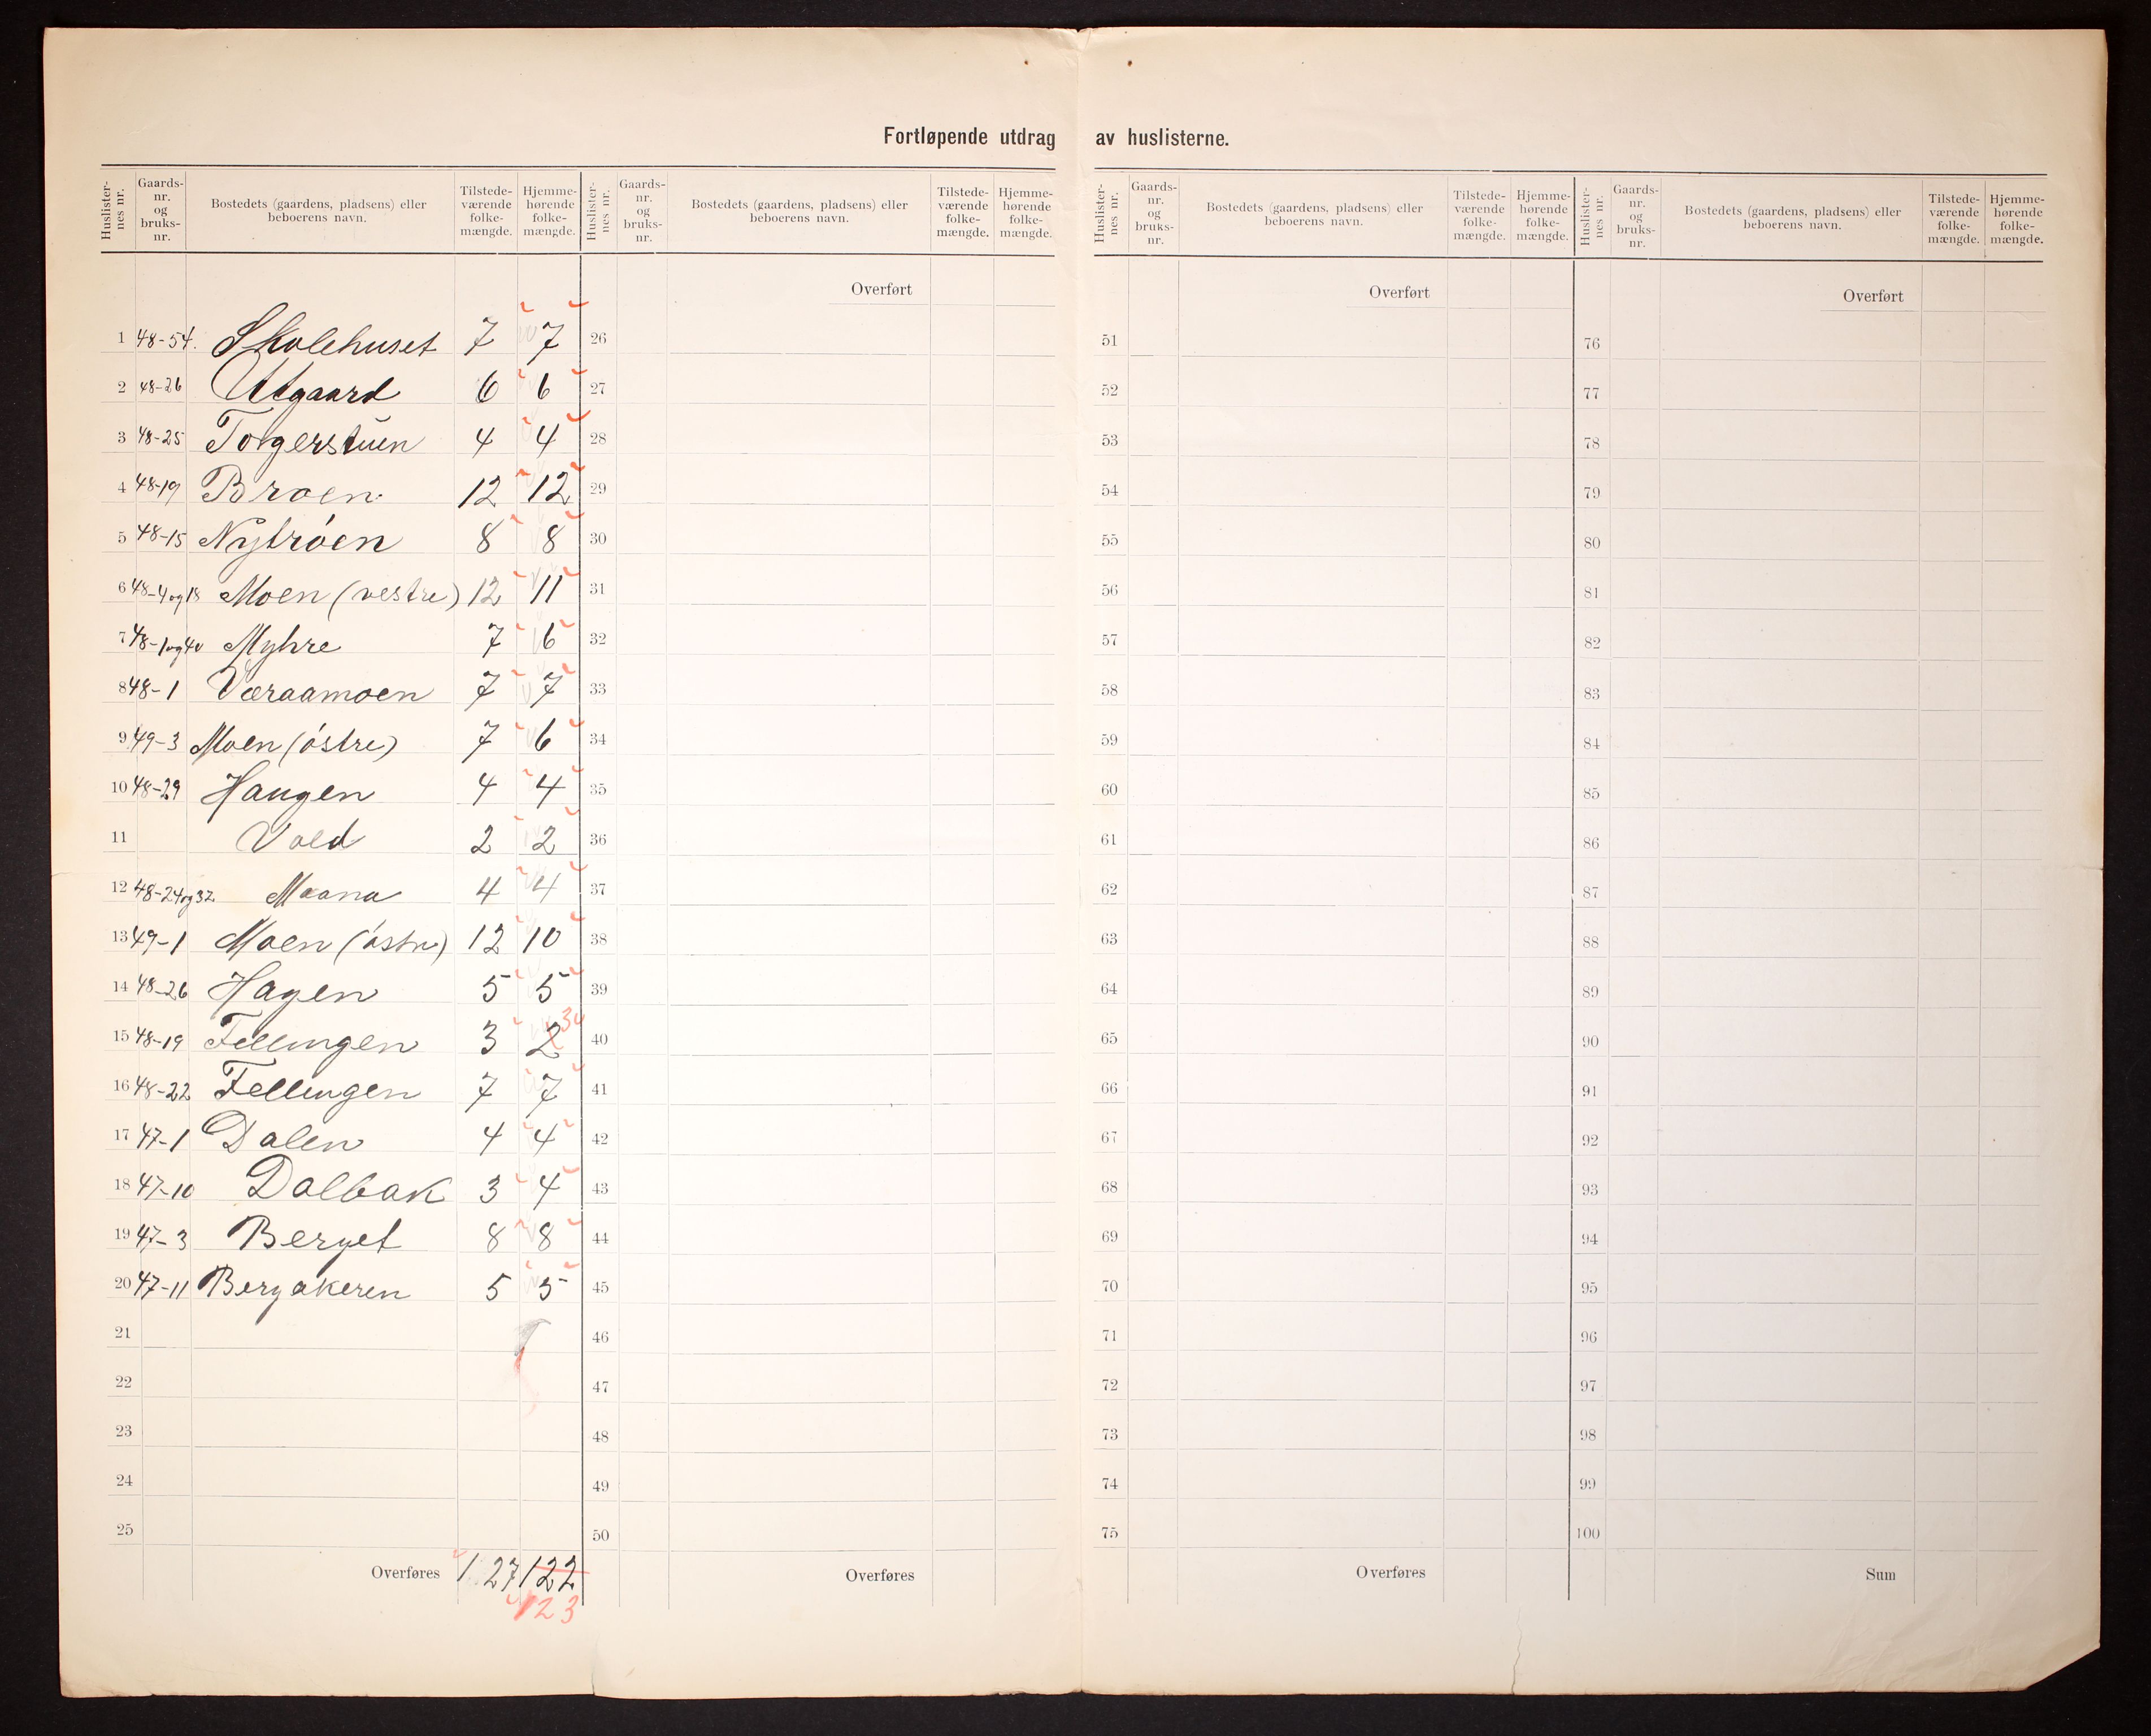 Fortløpende utdrag av huslisterne.
Huslister-nes nr. Gaards-nr. og bruks-nr. Bostedets (gaardens, pladsens) eller beboerens navn. Tilstede-værende folke-mængde. Hjemme-hørende folke-mængde.
1 48-54. Skolehuset 7 7
2 48-26 Utgaard 6 6
3 48-25 Torgerstuen 4 4
4 48-19 Broen 12 12
5 48-15 Nytrøen 8 8
6 48-4og18 Moen (vestre) 12 11
7 48-1og40 Myhre 7 6
8 48-1 Væraamoen 7 7
9 49-3 Moen (østre) 7 6
10 48-29 Haugen 4 4
11 Vold 2 2
12 48-24og32 Maana 4 4
13 49-1 Moen (østre) 12 10
14 48-26 Hagen 5 5
15 48-19 Fellingen 3 2 3
16 48-22 Fellingen 7 7
17 47-1 Dalen 4 4
18 47-10 Dalbak 3 4
19 47-3 Berget 8 8
20 47-11 Bergakeren 5 5
21
22
23
24
25
Overføres 127 122
123
Huslister-nes nr. Gaards-nr. og bruks-nr. Bostedets (gaardens, pladsens) eller beboerens navn. Tilstede-værende folke-mængde. Hjemme-hørende folke-mængde.
Overført
26
27
28
29
30
31
32
33
34
35
36
37
38
39
40
41
42
43
44
45
46
47
48
49
50
Overføres
Huslister-nes nr. Gaards-nr. og bruks-nr. Bostedets (gaardens, pladsens) eller beboerens navn. Tilstede-værende folke-mængde. Hjemme-hørende folke-mængde.
Overført
51
52
53
54
55
56
57
58
59
60
61
62
63
64
65
66
67
68
69
70
71
72
73
74
75
Overføres
Huslister-nes nr. Gaards-nr. og bruks-nr. Bostedets (gaardens, pladsens) eller beboerens navn. Tilstede-værende folke-mængde. Hjemme-hørende folke-mængde.
Overført
76
77
78
79
80
81
82
83
84
85
86
87
88
89
90
91
92
93
94
95
96
97
98
99
100
Sum